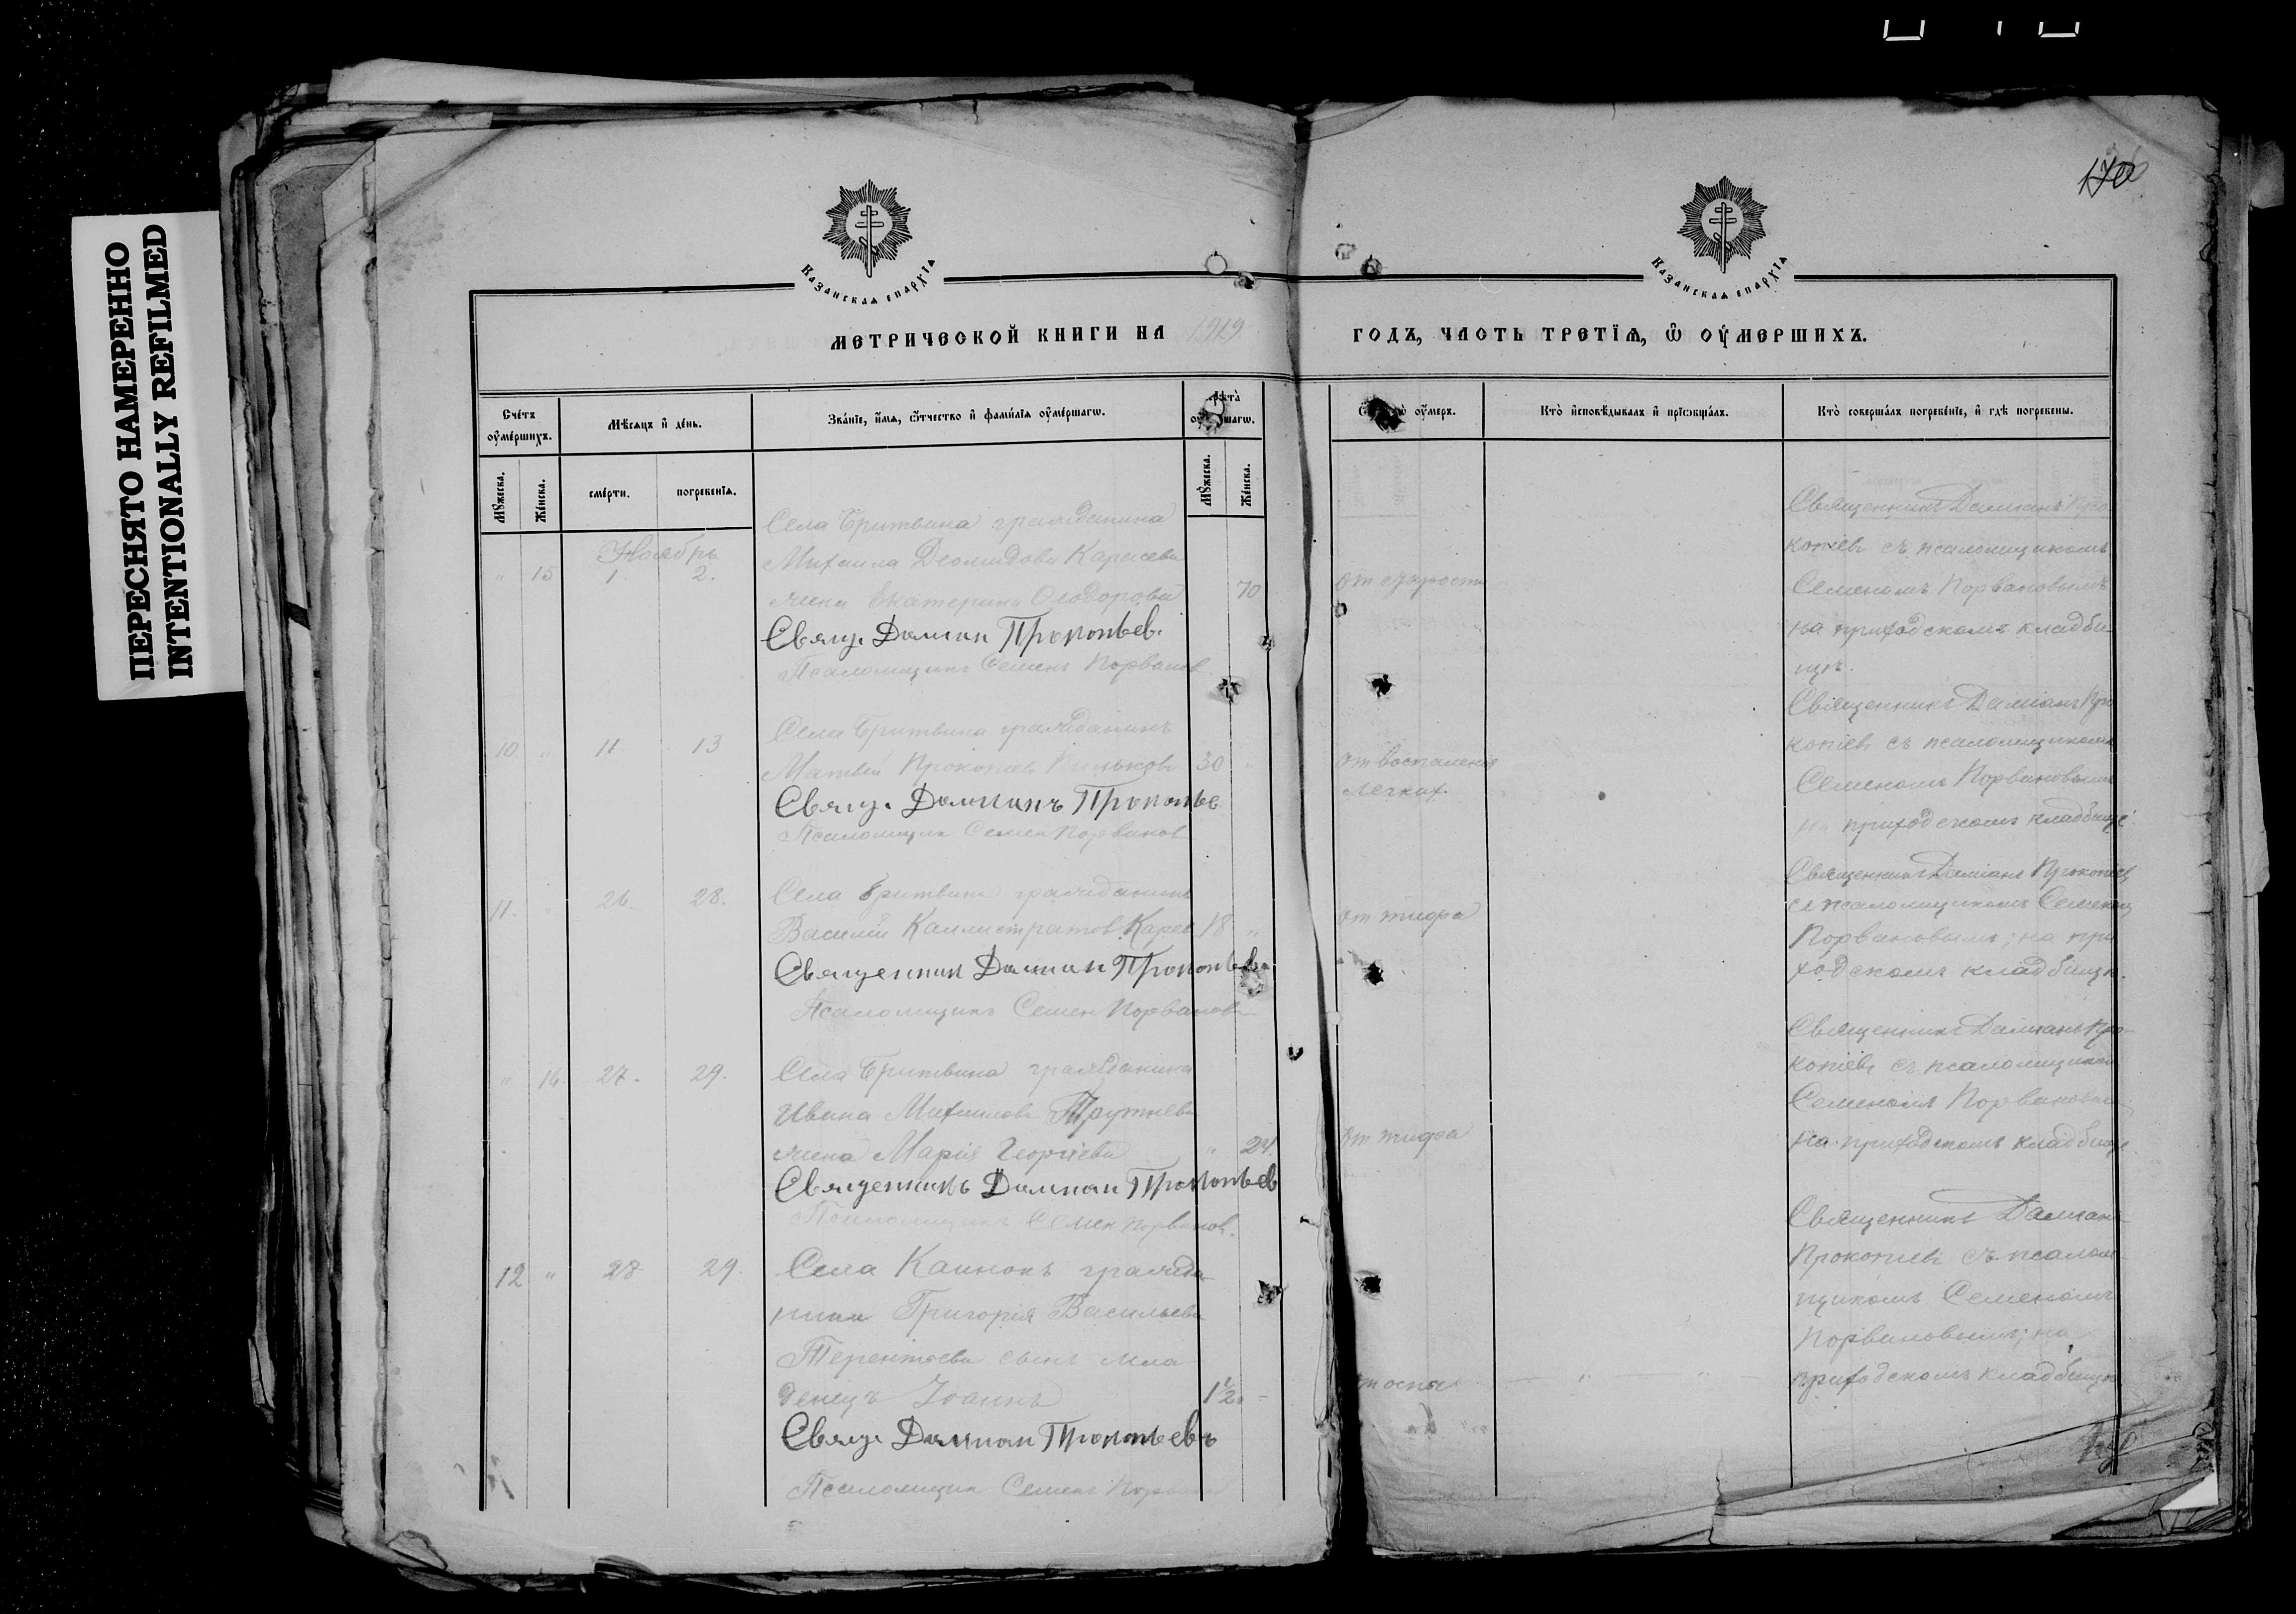 ПЕРЕСНЯТО НАМЕРЕННО
INTENTIONALLY REFILMED
170
Казанская епархїѧ
Казанская епархїѧ
МЕТРИЧЕСКОЙ КНИГИ НА 1919
ГОДЪ, ЧАСТЬ ТРЕТЇѦ, Ѿ ОУМЕРШИХЪ.
Счéтъ оумéршихъ.
Мѣсѧцъ и дéнь.
Звáнїе, и́мѧ, ѻ́тчество и фамѝлїѧ оумéршагѡ.
лѣта
оумершагѡ.
оумеръ.
Ктò исповѣ́дывалъ и прїѡбщáлъ.
Ктò совершáлъ погребéнїе, и гдѣ погребены.
Мꙋжеска.
Жéнска.
смéрти.
погребенїѧ.
Мꙋжеска.
Жéнска.
Ноябрь
" 15 1. 2.
Села Бритвина гражданина
Михаила Деомидова Карасева
жена Екатерина Ѳеодорова 70
Свящ. Дамиан Прокопьев.
Псаломщикъ Семенъ Порванов
От старости
Священникъ Даміанъ Про
копіевъ съ псаломщикомъ
Семеномъ Порвановымъ
на приходскомъ кладби
щѣ.
10 " 11. 13
Села Бритвина гражданинъ
Матвей Прокопіев 30 "
Свящ. Дамианъ Прокопье
Псаломщик Семен Порванов
От воспаления
легких
Священникъ Даміанъ Про
копіевъ съ псаломщикомъ
Семеномъ Порвановымъ
на приходскомъ кладбище.
11. " 26. 28.
Села Бритвина гражданинъ
Василий Каллистратов Карев 18 "
Священник Дамиан Прокопьев
Псаломщикъ Семен Порванов
От тифа
Священникъ Даміанъ Прокопіев
съ псаломщикомъ Семеном
Порвановымъ; на при
ходскомъ кладбищѣ.
" 16. 27. 29.
Села Бритвина гражданина
Ивана Михаилова Трутнева
жена Марія Георгіева " 24.
Священникъ Дамиан Прокопьев
Псаломщикъ Семен Порванов.
От тифа
Священникъ Даміанъ Про-
копіевъ съ псаломщиком
Семеномъ Порвановым
на приходскомъ кладбище
12 " 28 29.
Села Каинокъ гражда-
нина Григорія Васильева
Терентьева сынъ мла
денецъ Іоаннъ 1½
Свящ. Дамиан Прокопьевъ
Псаломщик Семенъ Порванов
От оспы
Священникъ Даміанъ
Прокопіевъ съ псалом
щикомъ Семеномъ
Порвановымъ; на
приходскомъ кладбищѣ